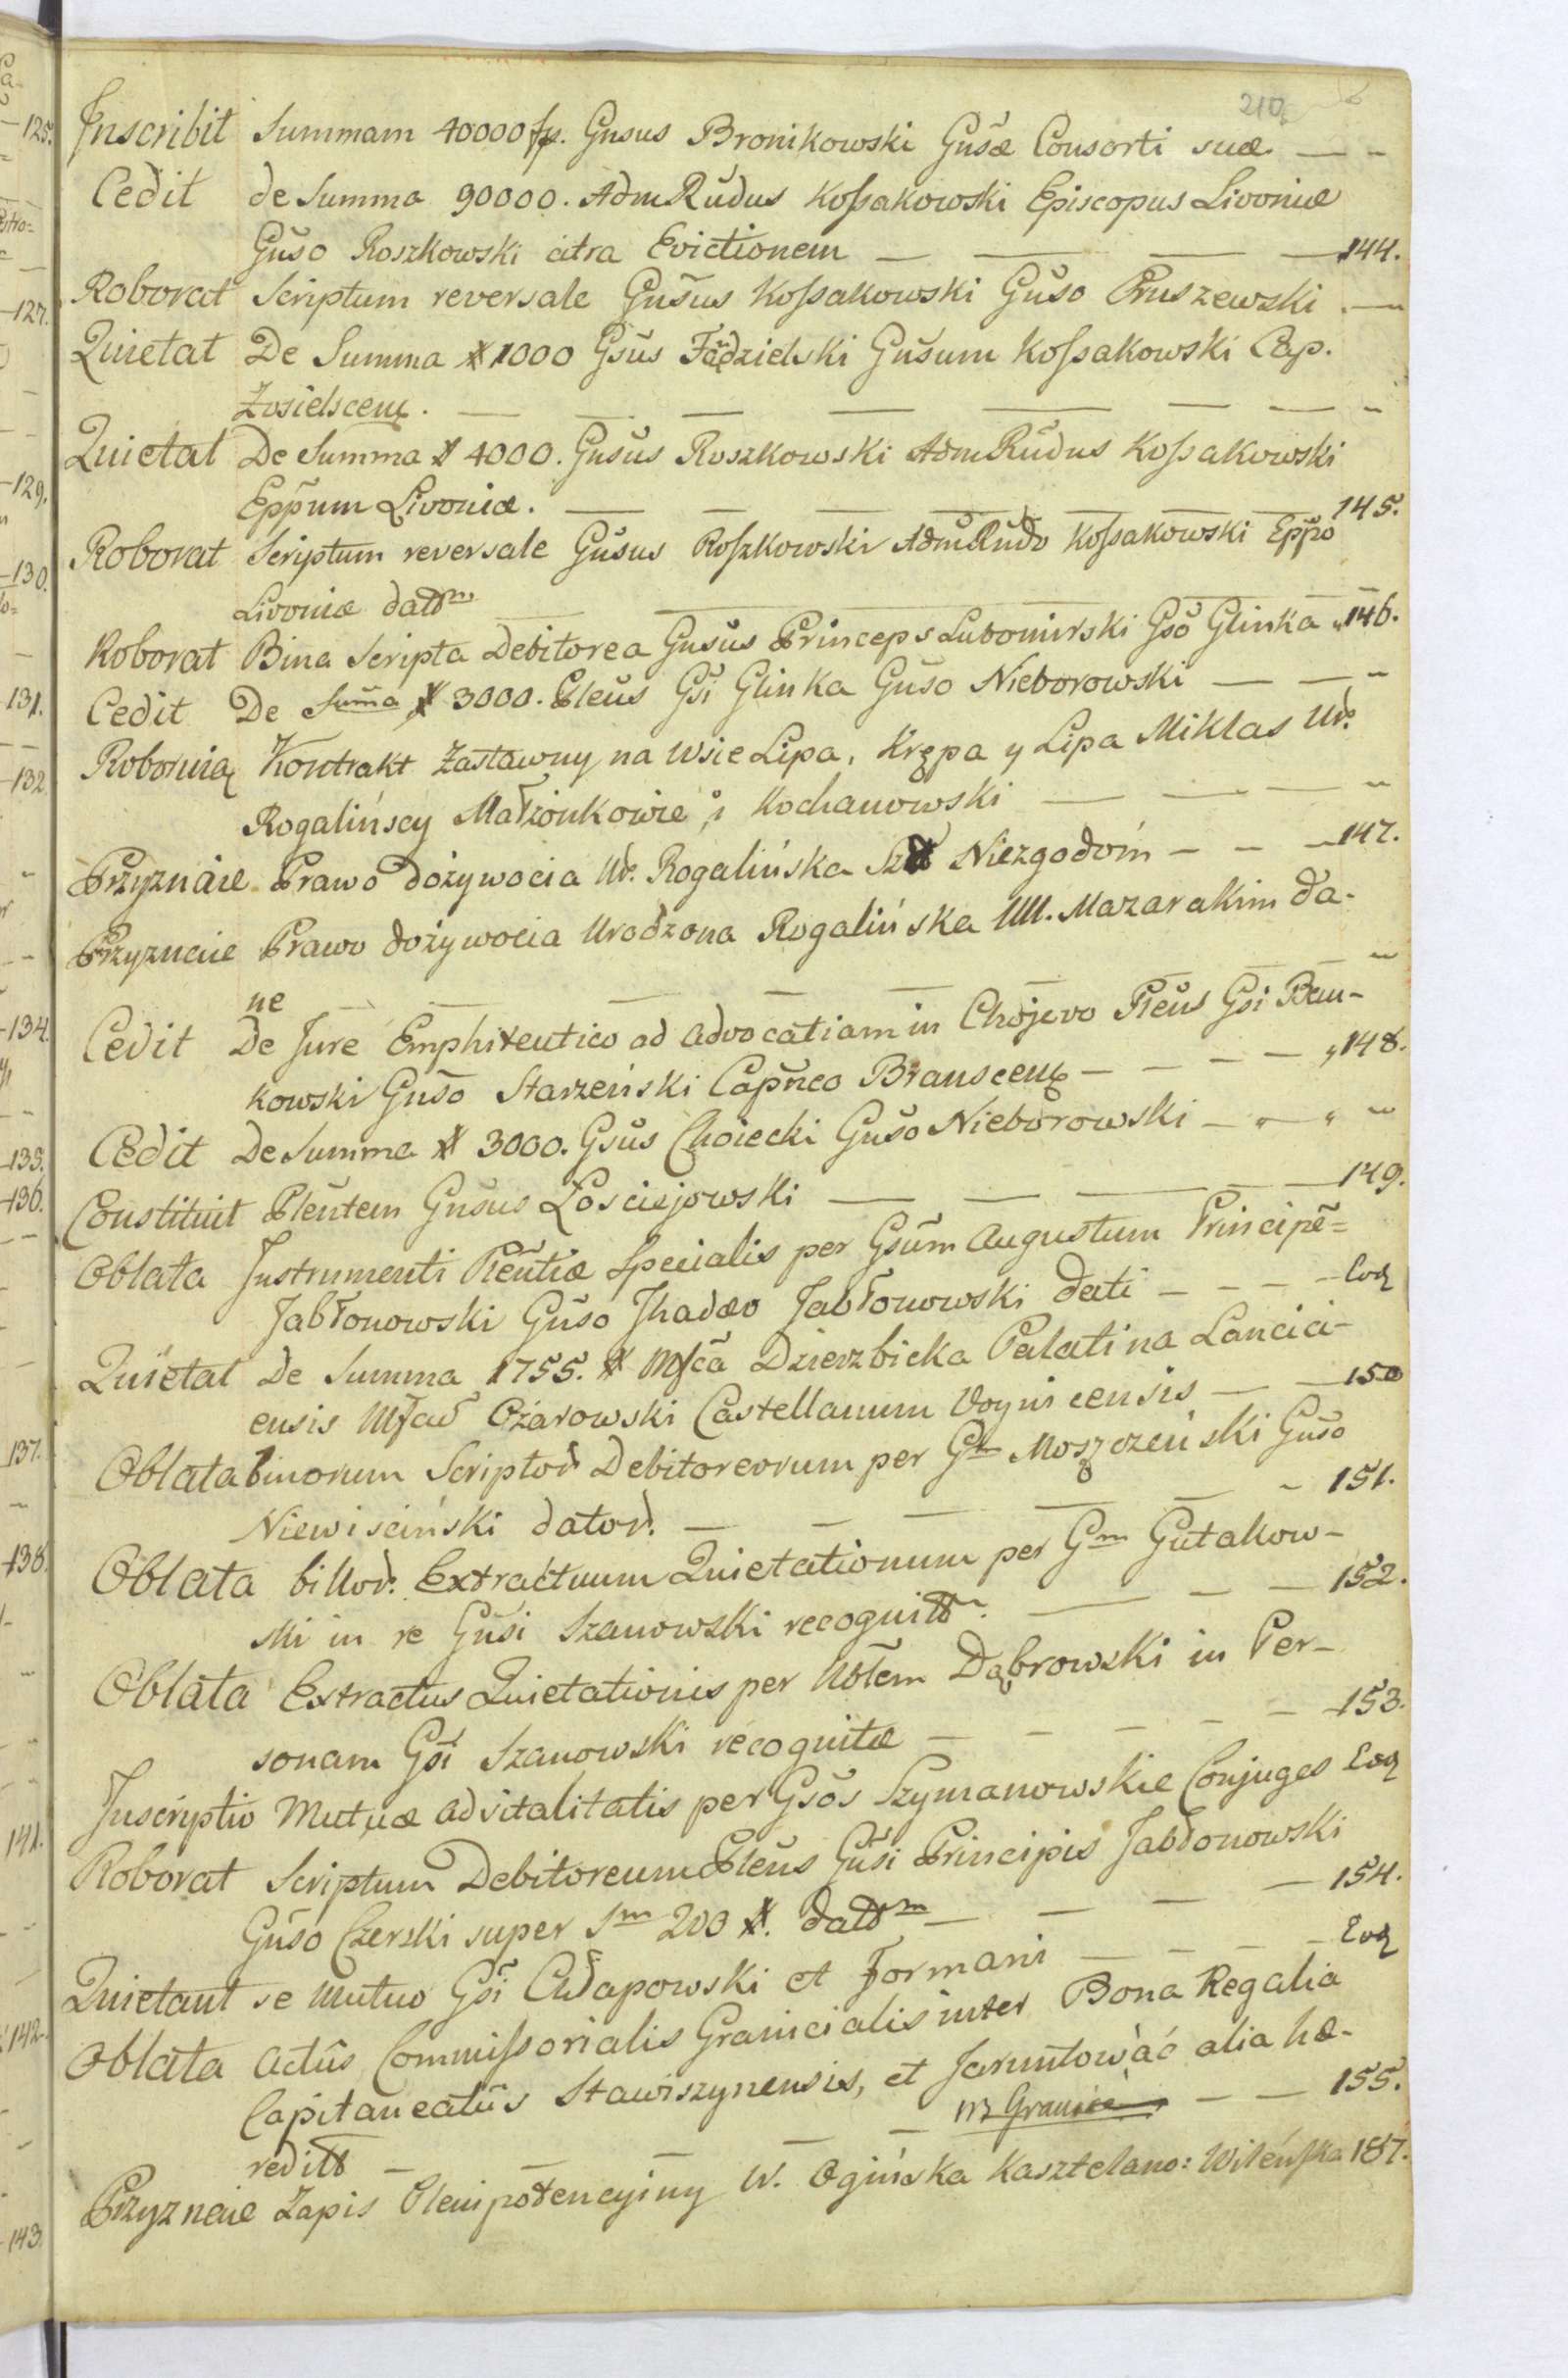 210
Inscribit Summam 40000 fp. Gnsus Bronikowski Gnsæ Consorti suæ — -
Cedit de Summa 90000. Adm Rndus Kossakowski Episcopus Livoniæ
Gnso Roszkowski citra Evictionem — — — — 144.
Roborat Scriptum reversale Gnsus Kossakowski Gnso Pruszewski . —
Quietat De Summa # 1000 Gsus Gnsum Kossakowski Cap.
Zosielscem. — — — — — — — -
Quietat De Summa # 4000. Gnsus Roszkowski Adm Rndus Kossakowski
Eppum Livoniæ. — — — — — — 145.
Roborat Scriptum reversale Gnsus Roszkowski Adm Rndo Kossakowski Eppo
Livoniæ datt m — —
Roborat Bina Scripta Debitorea Gnsus Princeps Lubomirski Gso Glinka 146.
Cedit De Suma # 3000. Plens Gsi Glinka Gnso Nieborowski — — -
Roboruią Kontrakt Zastawny na Wsie Lipa, Krępa y Lipa Miklas Ur.
Rogalińscy Małżonkowie i Kochanowski — — — -
Przyznaie Prawo dożywocia Ur. Rogalińska Niezgodom - - - 147.
Przyznaie Prawo dożywocia Urodzona Rogalińska UU. Mazarakim da-
ne — — — — — — -
Cedit De Jure Emphiteutico ad Advocatiam in Chojevo Plens Gsi Bań-
kowski Gnso Starzeński Capneo Branscem - - - — 148.
Cedit De Summa # 3000. Gsus Choiecki Gnso Nieborowski - - - -
Constituit Plentem Gnsus Łosciejowski — — — — 149.
Oblata Instrumenti Plentiæ Specialis per Gsum Augustum Principe=
Jabłonowski Gnso Thadæo Jabłonowski dati - - - - Eod
Quietat De Summa 1755. # Mfca Dzierzbicka Palatina Lancici-
ensis Ożarowski Castellanum Voynicensis — — 150
Oblata binorum Scriptor Debitoreorum per Gm Moszczeński Gnso
Niewisciński dator. — — — — — - 151.
Oblata billor. Extractuum Quietationum per Gm Gutakow-
ski in re Gnsi Szanowski recognitt. — — — 152.
Oblata Extractus Quietationis per Noblem Dąbrowski in Per-
sonam Gsi Szanowski recognitæ — - - - - 153.
Inscriptio Mutuæ advitalitatis per Gsos Szymanowskie Conjuges Eod
Roborat Scriptum Debitoreum Plens Gnsi Principis Jabłonowski
Gnso Czerski super Sm 200 #. datt m — — — — 154.
Quietant se mutuo Gsi Chłapowski et Formani — - - - Eod
Oblata Actûs Commissorialis Granicialis inter Bona Regalia
Capitaneatûs Stawiszynensis, et Jaruntować alia hæ-
reditt — — — — — — 155.
Przyznaie Zapis Plenipotencyiny W. Ogińska Kasztelano: Wileńska 187.